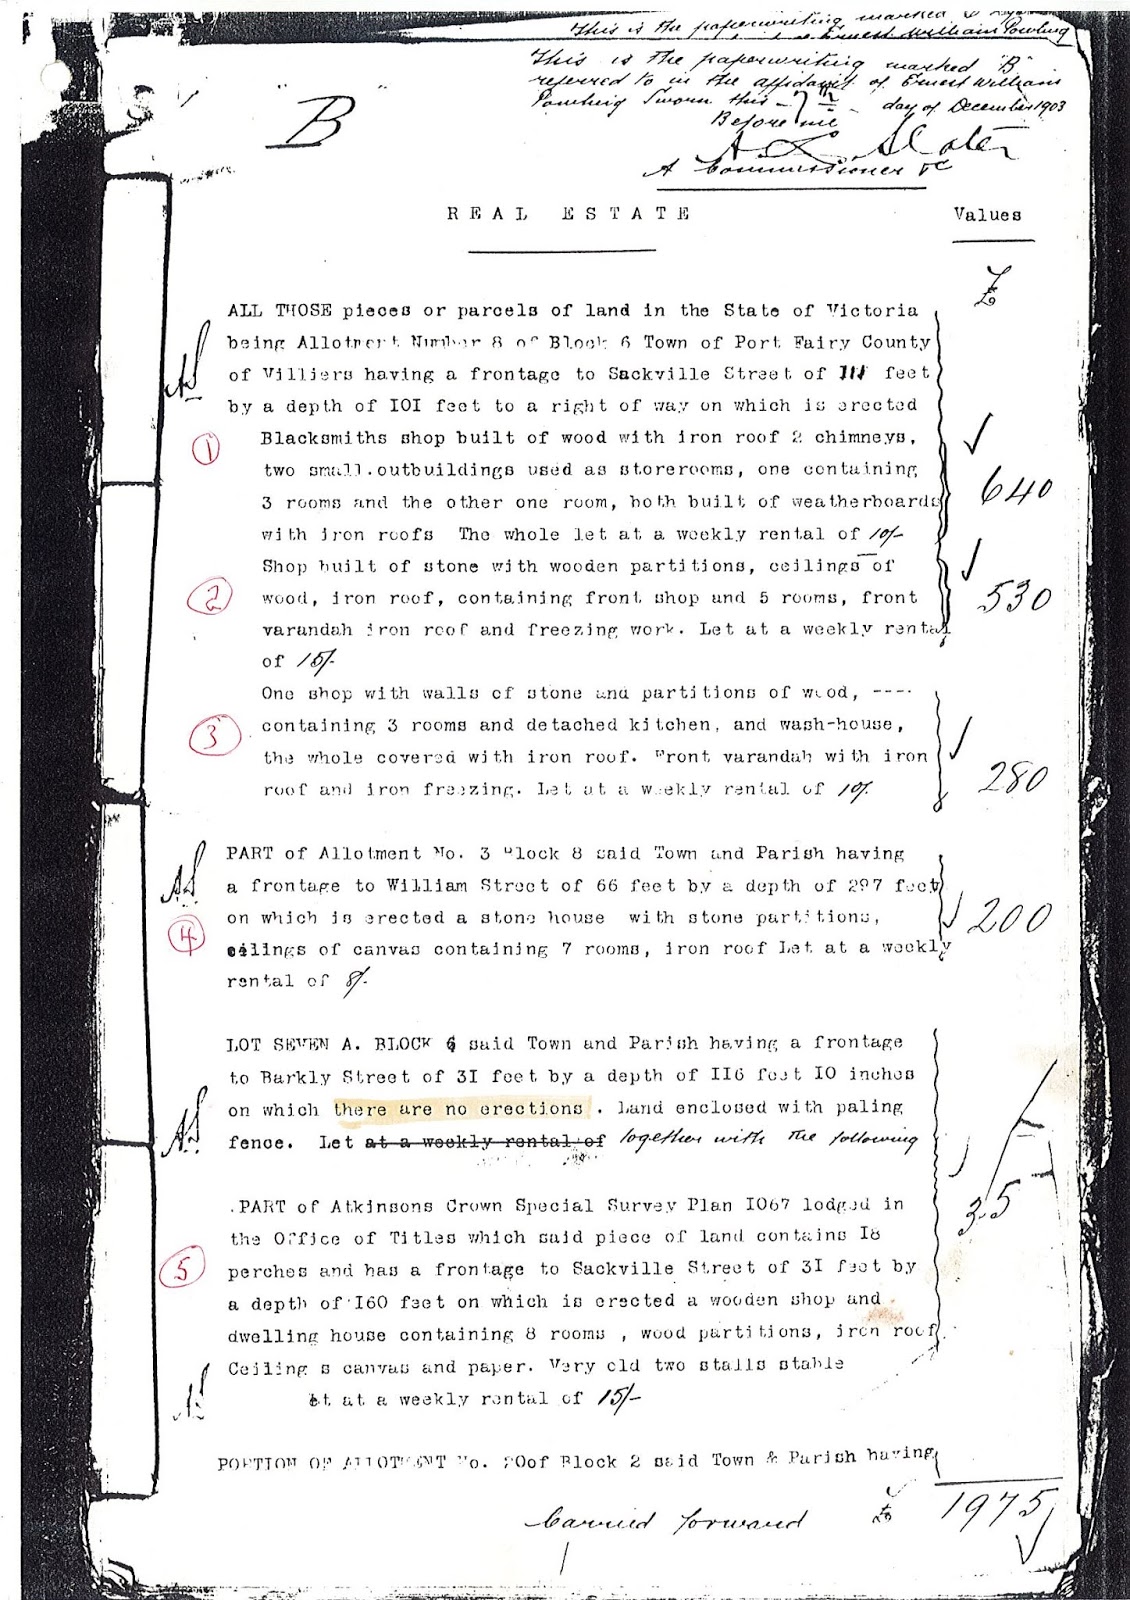 This is the paperwriting marked
Ernest William Powling
This is the paperwriting marked "B"
referred to in the affidavit of Ernest William
Powling Sworn this day of December 1903
Before me
A. Slater
A Commissioner &c
"B"
REAL ESTATE
Values
£
ALL THOSE pieces or parcels of land in the State of Victoria
being Allotment Number 8 of Block 6 Town of Port Fairy County
of Villiers having a frontage to Sackville Street of feet
by a depth of IOI feet to a right of way on which is erected
Blacksmiths shop built of wood with iron roof 2 chimneys,
two small.outbuildings used as storerooms, one containing
3 rooms and the other one room, both built of weatherboards
with iron roofs The whole let at a weekly rental of 10/-
1
640
Shop built of stone with wooden partitions, ceilings of
wood, iron roof, containing front shop and 5 rooms, front
varandah iron roof and freezing work. Let at a weekly rental
of 15/-
2
530
One shop with walls of stone and partitions of wood, ----
containing 3 rooms and detached kitchen, and wash-house,
the whole covered with iron roof. Front varandah with iron
roof and iron freezing. Let at a weekly rental of 10/.
3
280
AS
PART of Allotment No. 3 Block 8 said Town and Parish having
a frontage to William Street of 66 feet by a depth of 297 feet
on which is erected a stone house with stone partitions,
ceilings of canvas containing 7 rooms, iron roof Let at a weekly
rental of 8/-
4
200
LOT SEVEN A. BLOCK 6 said Town and Parish having a frontage
to Barkly Street of 3I feet by a depth of II6 feet IO inches
on which there are no erections . Land enclosed with paling
fence. Let at a weekly rental of together with the following
AS
.PART of Atkinsons Crown Special Survey Plan IO67 lodged in
the Office of Titles which said piece of land contains I8
perches and has a frontage to Sackville Street of 3I feet by
a depth of I60 feet on which is erected a wooden shop and
dwelling house containing 8 rooms , wood partitions, iron roof
Ceiling s canvas and paper. Very old two stalls stable
at a weekly rental of 15/-
5
PORTION OF ALLOTMENT No. 20of Block 2 said Town & Parish having
Carried forward £ 1975